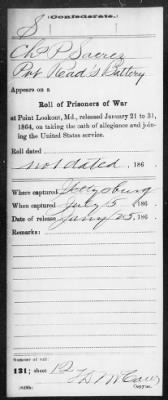 (Confederate.)
S
Chs P
Pvt Read's Battery
Appears on a
Roll of Prisoners of War
at Point Lookout, Md., released January 21 to 31,
1864, on taking the oath of allegiance and join-
ing the United States service.
Roll dated
not dated, 186 .
Where captured Gettysburg
When captured July 5, 186 .
Date of release Jany 25, 186 .
Remarks:
Number of roll:
131; sheet 12
Copyist.